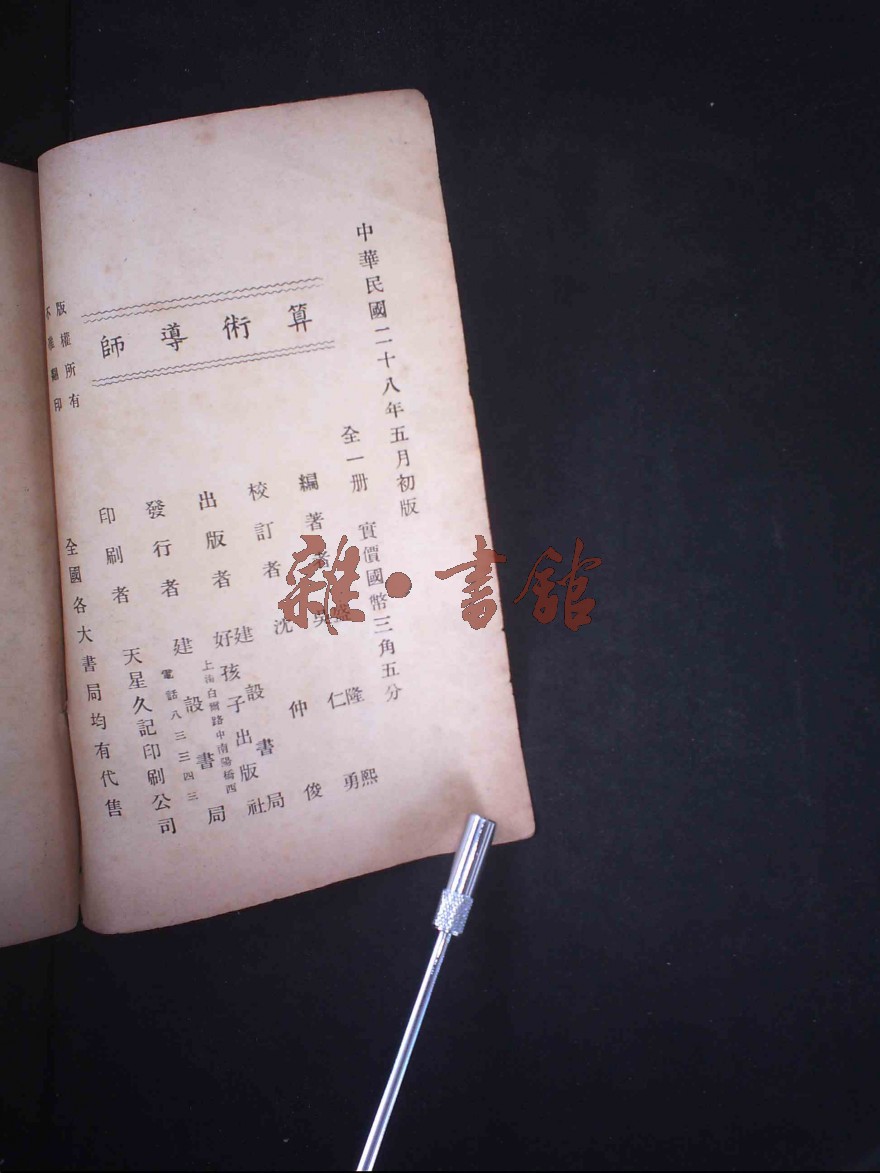 中華民國二十八年五月初版
算術導師
全一册 實價國幣三角五分
編著者 盛隆熙 吳仁勇
校訂者 沈仲俊
出版者 建設書局 好孩子出版社
上海白爾路中南陽橋西
發行者 建設書局
電話八三三四三
印刷者 天星久記印刷公司
全國各大書局均有代售
版權所有
不准翻印
雜·書館